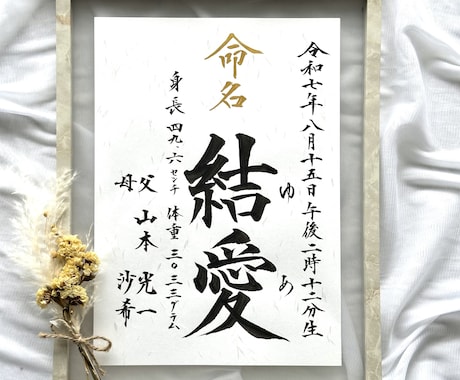 令和七年八月十五日午後二時十二分生
命名
結愛
ゆあ
身長四九・六センチ 体重三〇三三グラム
父 山本 光一
母 沙希